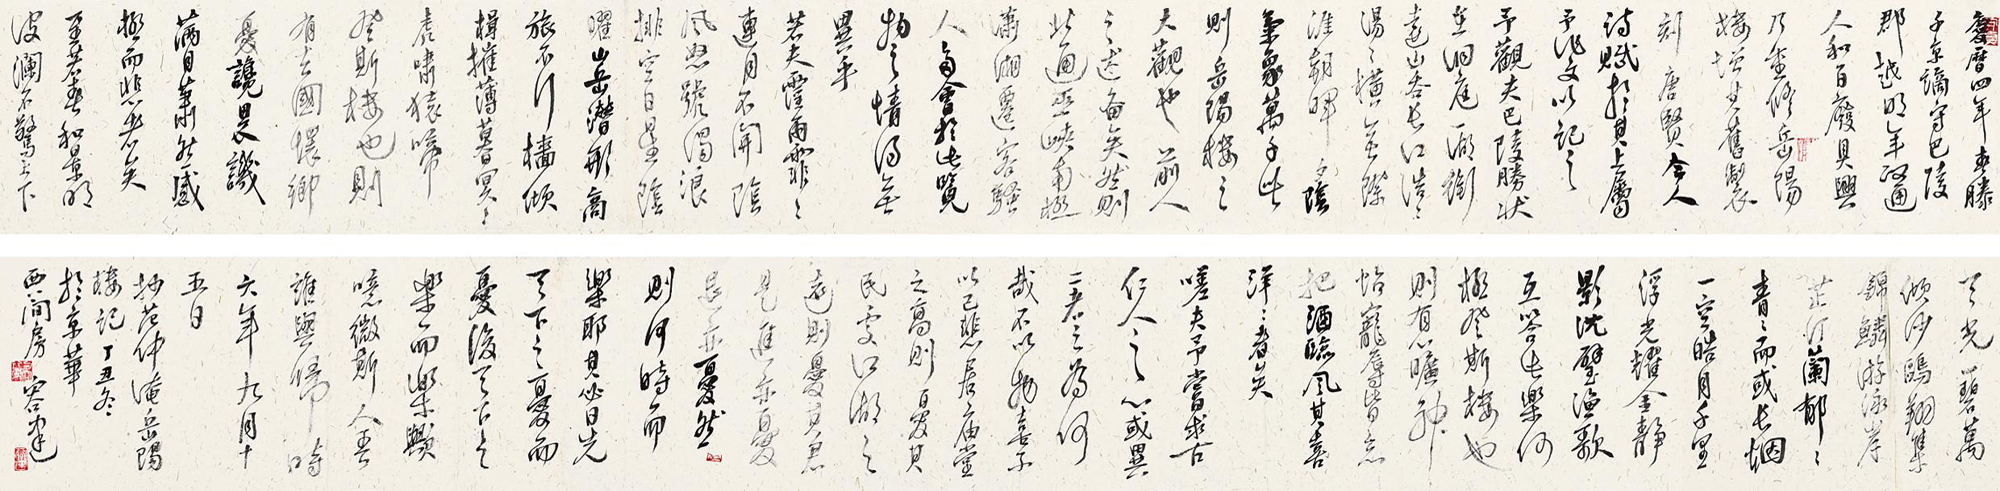 慶曆四年春滕
子京謫守巴陵
郡越明年政通
人和百廢具興
乃重修岳陽
樓增其舊製
刻唐賢今人
詩賦於其上屬
予作文以記之
予觀夫巴陵勝狀
在洞庭一湖銜
遠山吞長江浩々
湯々橫無際
涯朝暉夕陰
氣象萬千此
則岳陽樓之
大觀也前人
之述備矣然則
北通巫峽南極
瀟湘遷客騷
人多會於此覽
物之情得無
異乎
若夫霪雨霏々
連月不開陰
風怒號濁浪
排空日星隱
曜山岳潛形商
旅不行檣傾
楫摧薄暮冥々
虎嘯猿啼
登斯樓也則
有去國懷鄉
憂讒畏譏
滿目蕭然感
極而悲者矣
至若春和景明
波瀾不驚上下
天光一碧萬
傾沙鷗翔集
錦鱗游泳岸
芷汀蘭郁々
青々而或長烟
一空皓月千里
浮光耀金靜
影沈璧漁歌
互答此樂何
極登斯樓也
則有心曠神
怡寵辱皆忘
把酒臨風其喜
洋々者矣
嗟夫予嘗求古
仁人之心或異
二者之為何
哉不以物喜不
以己悲居廟堂
之高則憂其
民處江湖之
遠則憂其君
是進亦憂
退亦憂然
則何時而
樂耶其必曰先
天下之憂而
憂後天下之
樂而樂歟
噫微斯人吾
誰與歸時
六年九月十
五日
抄范仲淹岳陽
樓記丁丑冬
於京華
西間房容建